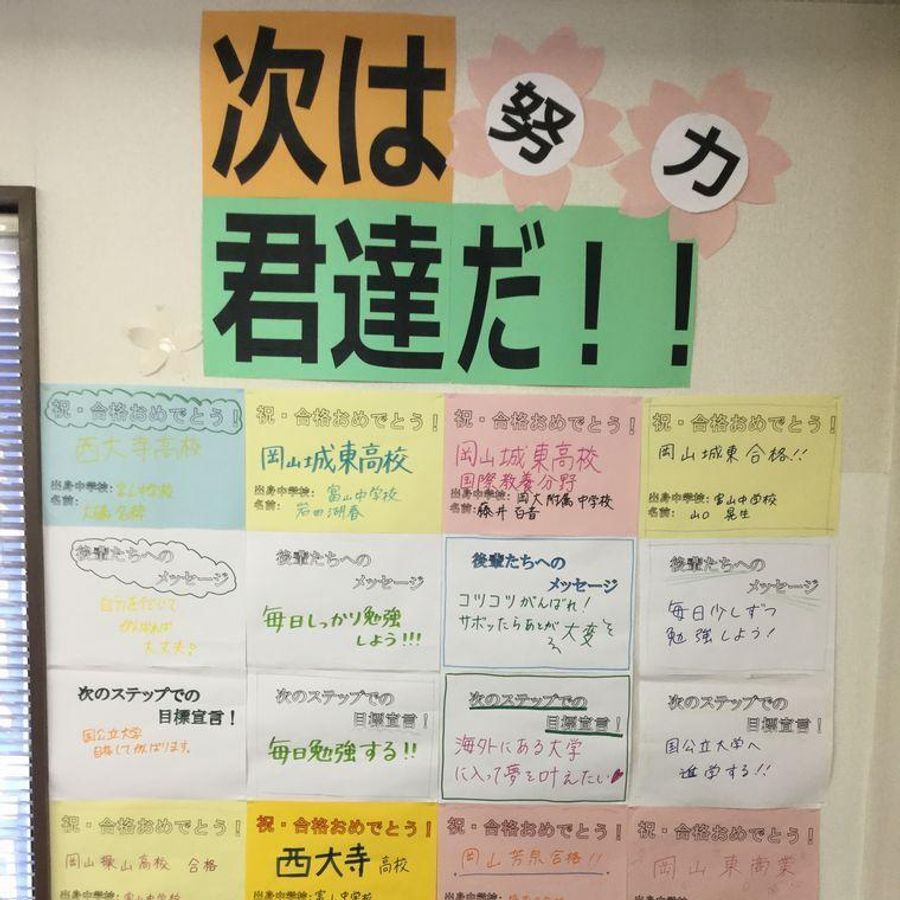 次は
努力
君達だ!!
祝・合格おめでとう!
西大寺高校
出身中学校:富山中学校
名前:
後輩たちへの
メッセージ
自分を信じて
がんばれば
大丈夫!
次のステップでの
目標宣言!
国公立大学
目指してがんばります。
祝・合格おめでとう!
岡山城東高校
出身中学校:富山中学校
名前:岩田湖春
後輩たちへの
メッセージ
毎日しっかり勉強
しよう!!!
次のステップでの
目標宣言!
毎日勉強する!!
祝・合格おめでとう!
岡山城東高校
国際教養分野
出身中学校:岡大附属中学校
名前:藤井百音
後輩たちへの
メッセージ
コツコツがんばれ!
サボッたらあとが大変
次のステップでの
目標宣言!
海外にある大学
に入って夢を叶えたい
祝・合格おめでとう!
岡山城東合格!!
出身中学校:富山中学校
名前:山口晃生
後輩たちへの
メッセージ
毎日少しずつ
勉強しよう!
次のステップでの
目標宣言!
国公立大学へ
進学する!!
祝・合格おめでとう!
岡山操山高校 合格
出身中学校:富山中学校
祝・合格おめでとう!
西大寺高校
出身中学校:富山中学校
祝・合格おめでとう!
岡山芳泉合格!!
出身中学校:
祝・合格おめでとう!
岡山東商業